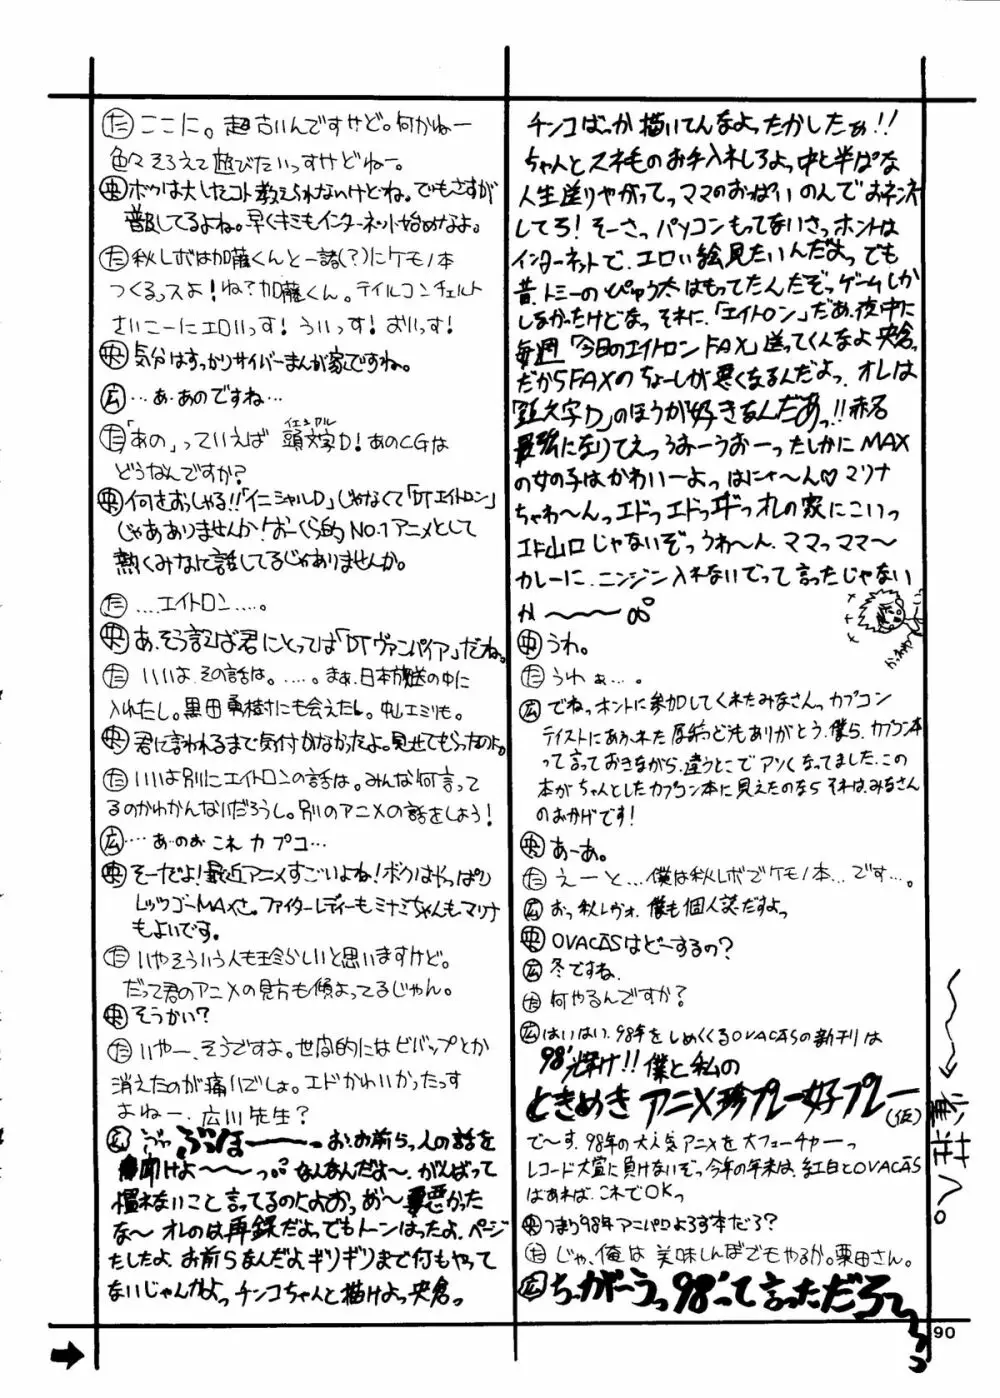 ㋟ ここに。超古いんですけど。何かねー
色々そろえて遊びたいっすけどねー。
㊥ ボクは大したコト教えられないけどね。でもさすが
普及してるよね。早くキミもインターネット始めなよ。
㋟ 秋レボは加藤くんと一緒(?)にケモノ本
つくるっスよ!ね?加藤くん。テイルコンチェルト
さいこーにエロいっす!ういっす!おいっす!
気分はすっかりサイバーまんが家ですね。
広 …あ、あのですね…
㋟「あの」っていえば 頭文字D!あのCGは
イニシャル
どうなんですか?
何をおっしゃる!!「イニシャルD」じゃなくて「DTエイトロン」
じゃあありませんか!おーくら的 NO.1アニメとして
熱くみなに話してるじゃありませんか。
㋟ ….エイトロン….。
あ、そう言えば君にとっては「DTヴァンパイア」だね。
㋟ いいよ、その話は。……。まぁ、日本放送の中に
入れたし。黒田勇樹にも会えたし。中山エミリも。
君に言われるまで気付かなかったよ。見せてもらったのに。
㋟ いいよ別にエイトロンの話は。みんな何言って
るのかわかんないだろうし。別のアニメの話をしよう!
広 …あーのぉ これ カプコ…
そーだよ!最近アニメすごいよね!ボクはやっぱり
レッツゴーMAXさ。ファイターレディーもミナミちゃんもマリナ
もよいです。
㋟ いやそういう人も珍らしいと思いますけど。
だって君のアニメの見方も傾よってるじゃん。
そうかい?
㋟ いやー、そうですよ。世間的にはビバップとか
消えたのが痛いでしょ。エドかわいかったっす
よねー、広川先生?
広 ぶっほーーー お、お前ら、人の話を
聞けよ〜〜っ。なんなんだよ〜、がんばって
慣れないこと言ってるのによおっ、あ〜悪かった
な〜 オレのは再録だよっでもトーンはったよ、ページ
たしたよ、お前らなんだよギリギリまで何もやって
ないじゃんかよっ チンコちゃんと描けよっ央倉っ
チンコばっか描いてんなよったかしたぁ!!
ちゃんとスネ毛のお手入れしろよっ中と半ぱな
人生送りやがってっママのおっぱいのんでおネンネ
してろ!そーさっパソコンもってないさっホントは
インターネットで、エロい絵見たいんだよっでも
昔、トミーのぴゅう太はもってたんだぞっゲームしか
しなかったけどなっ それに、「エイトロン」だあ、夜中に
毎週「今日のエイトロンFAX」送ってくんなよ央倉っ
だからFAXのちょーしが悪くなるんだよっ、オレは
「頭文字D」のほうが好きなんだあっ!!赤名
最強になりてえっうおーうおーったしかにMAX
の女の子はかわいーよっはにゃ〜ん♡マリナ
ちゃわ〜んっエドっエドっエドっオレの家にこいっ
エド山口じゃないぞっうわ〜ん、ママっママ〜
カレーに、ニンジン入れないでって言ったじゃない
か〜〜〜
うわ。
㋟ うわぁ…。
広 でねっホントに参加してくれたみなさんっカプコン
テイストにあふれた原稿どもありがとう、僕ら、カプコン本
って言っておきながら、違うとこでアツくなってました、この
本がちゃんとしたカプコン本に見えたのなら それは、みなさん
のおかげです!
あーあ。
㋟ えーと…僕は秋レボでケモノ本…です…。
広 おっ秋レヴォ、僕も個人誌だすよっ
OVACASはどーするの?
広 冬ですね、
㋟ 何やるんですか?
広 はいはい、98年をしめくくるOVACASの新刊は
98'輝け!!僕と私の
ときめき アニメ珍プレー好プレー(仮)
で〜す、98年の大人気アニメを大フューチャーっ
レコード大賞に負けないぞっ今年の年末は、紅白とOVACAS
はあれば、これでOKっ
つまり98年アニパロよろず本だろ?
㋟ じゃ、俺は 美味しんぼでもやるか。栗田さん。
広 ちっがーうっ98'って言っただろーーっっ
90